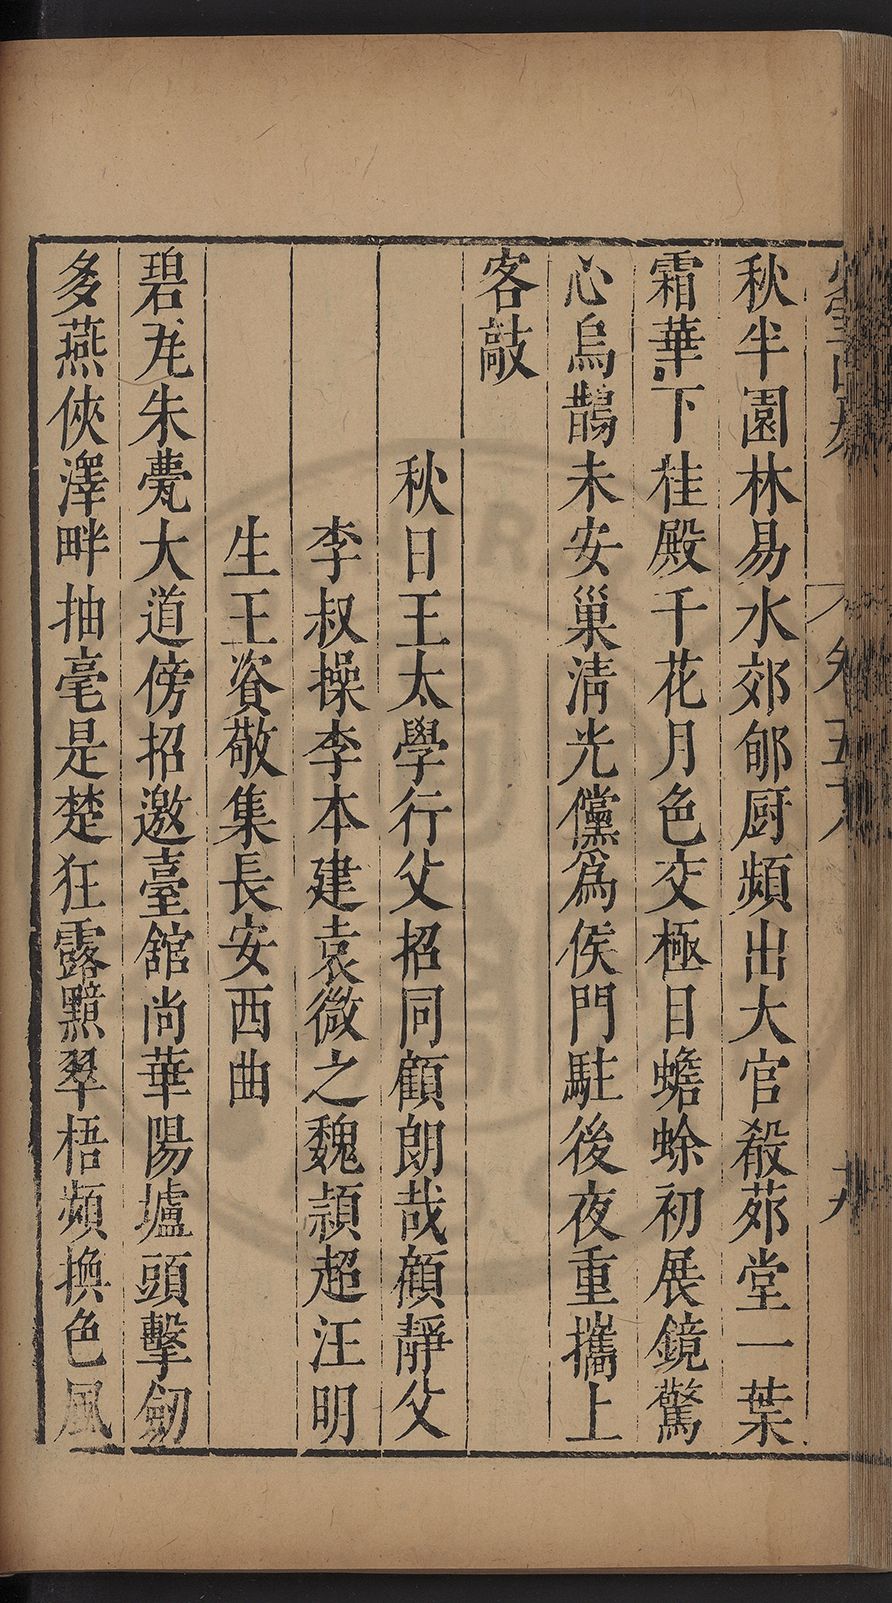 卷五
秋半園林易水郊郇厨頻出大官殽茆堂一葉
霜華下桂殿千花月色交極目蟾蜍初展鏡驚
心烏鵲未安巢清光儻爲侯門駐後夜重攜上
客敲
秋日王太學行父招同顧朗哉顧靜父
李叔操李本建袁微之魏頴超汪明
生王資敬集長安西曲
碧瓦朱甍大道傍招邀臺館尚華陽壚頭擊劒
多燕俠澤畔抽毫是楚狂露黯翠梧頻換色風